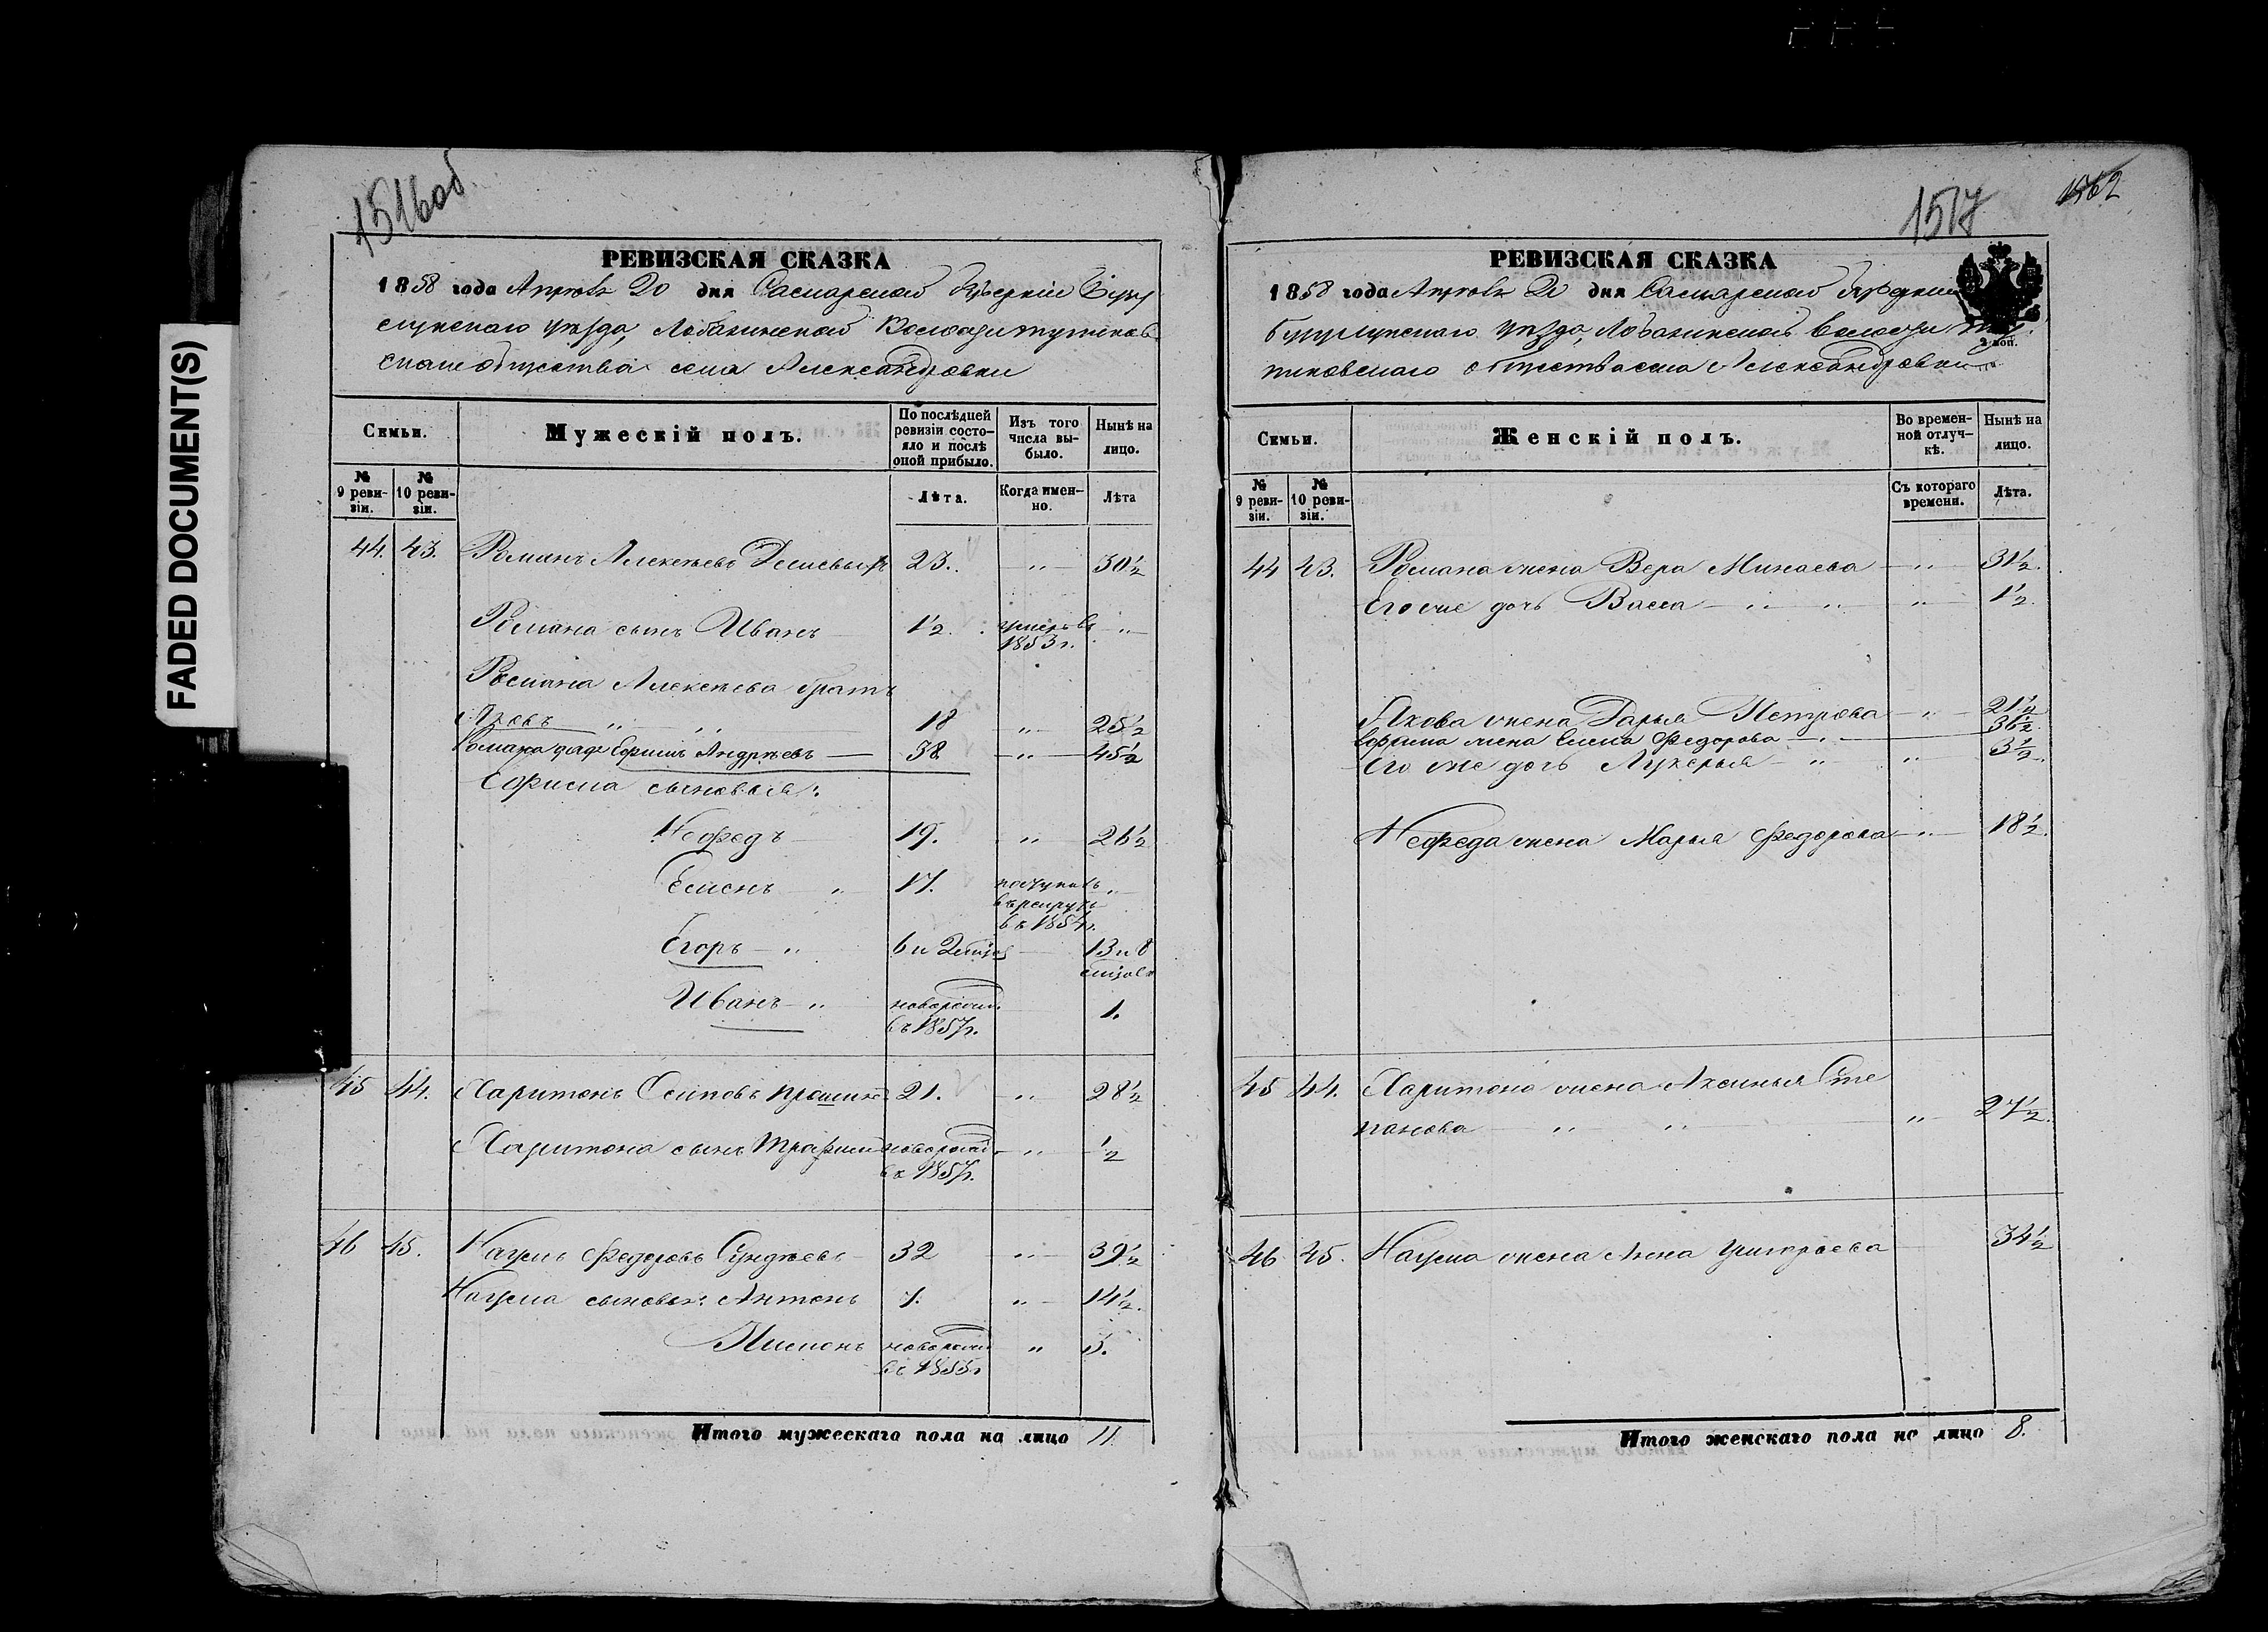 FADED DOCUMENT(S)
1516 об.
РЕВИЗСКАЯ СКАЗКА
1858 года Апреля 20 дня Самарской Губернии Бугу
сланскаго уѣзда,
общества села Александровки
Семьи.
Мужескій полъ.
По послѣдней ревизіи состояло и послѣ оной прибыло.
Изъ того числа выбыло.
Нынѣ на лицо.
№ 9 ревизіи.
№ 10 ревизіи.
Лѣта.
Когда именно.
Лѣта
44. 43. Романъ Алексѣевъ 23. " 30½
Романа сынъ Иванъ 1½. умеръ въ 1853 г. "
Романа Алексѣева братъ
Яковъ " " 18 " 25½
Романа дядя Ефимъ Андрѣевъ 38 " 45½
Ефима сыновья:
Нефедъ 19. " 26½
Семенъ " 17. поступилъ въ рекруты въ 1854 г. "
Егоръ " 6 и 2 13 и 8
Иванъ " новорожд. въ 1857 г. 1.
45 44. Харитонъ Осиповъ 21. " 28½
Харитона сынъ Трафимъ новорожд. въ 1857 г. " ½
46 45. Наумъ Федоровъ 32 " 39½
Наума сыновья: Антонъ 7. " 14½.
Пименъ новорожд. въ 1853 г. " 5.
Итого мужескаго пола на лицо 11
1517
1562
РЕВИЗСКАЯ СКАЗКА
1858 года Апреля 20 дня Самарской Губерніи
Бугурусланскаго уѣзда,
общества села Александровки
2 коп.
Семьи.
Женскій полъ.
Во временной отлучкѣ.
Нынѣ на лицо.
№ 9 ревизіи.
№ 10 ревизіи.
Съ котораго времени.
Лѣта.
44 43. Романа жена Вера Минаева " 31½.
Его же дочь Васса " " " 1½.
Якова жена Дарья Петрова " 21½
Ефима жена Елена Федорова " 36½.
Его же дочь Лукерья " " 3½.
Нефеда жена Марья Федорова " 18½.
45 44. Харитона жена Аксинья Сте
панова " " " 27½.
46 45. Наума жена Анна Григорьева 34½
Итого женскаго пола на лицо 8.